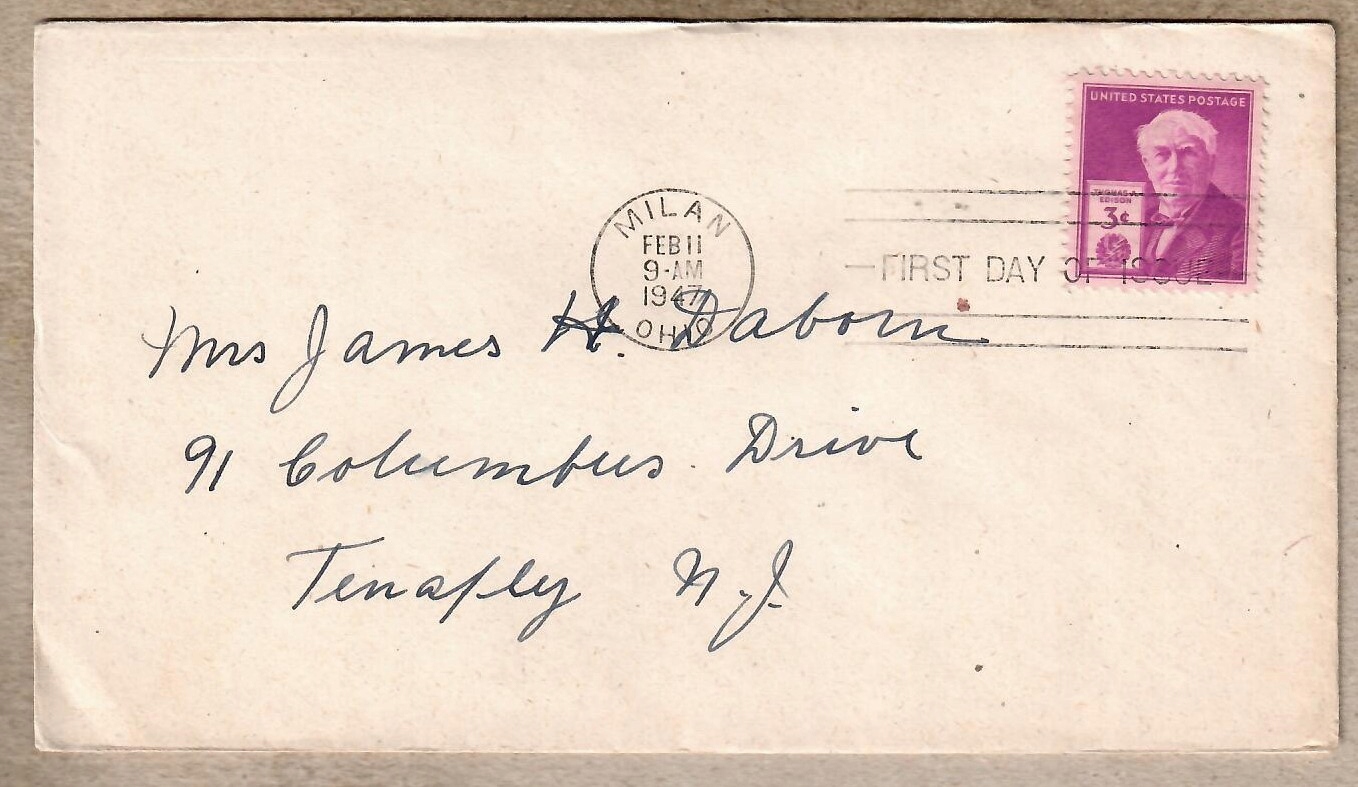 UNITED STATES POSTAGE
THOMAS A.
EDISON
3¢
MILAN
FEB 11
9-AM
1947
OHIO
FIRST DAY OF ISSUE
Mrs James H. Daborn
91 Columbus Drive
Tenafly N.J.